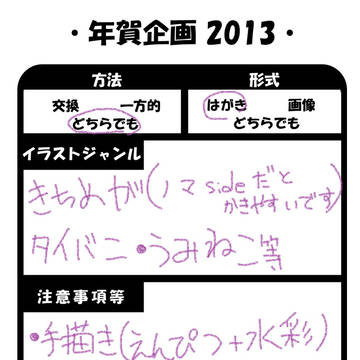 ・年賀企画 2013・
方法 形式
交換 一方的 はがき 画像
どちらでも どちらでも
イラストジャンル
きちめが(ノマsideだと
かきやすいです)
タイバニ・うみねこ等
注意事項等
・手描き(えんぴつ+水彩)